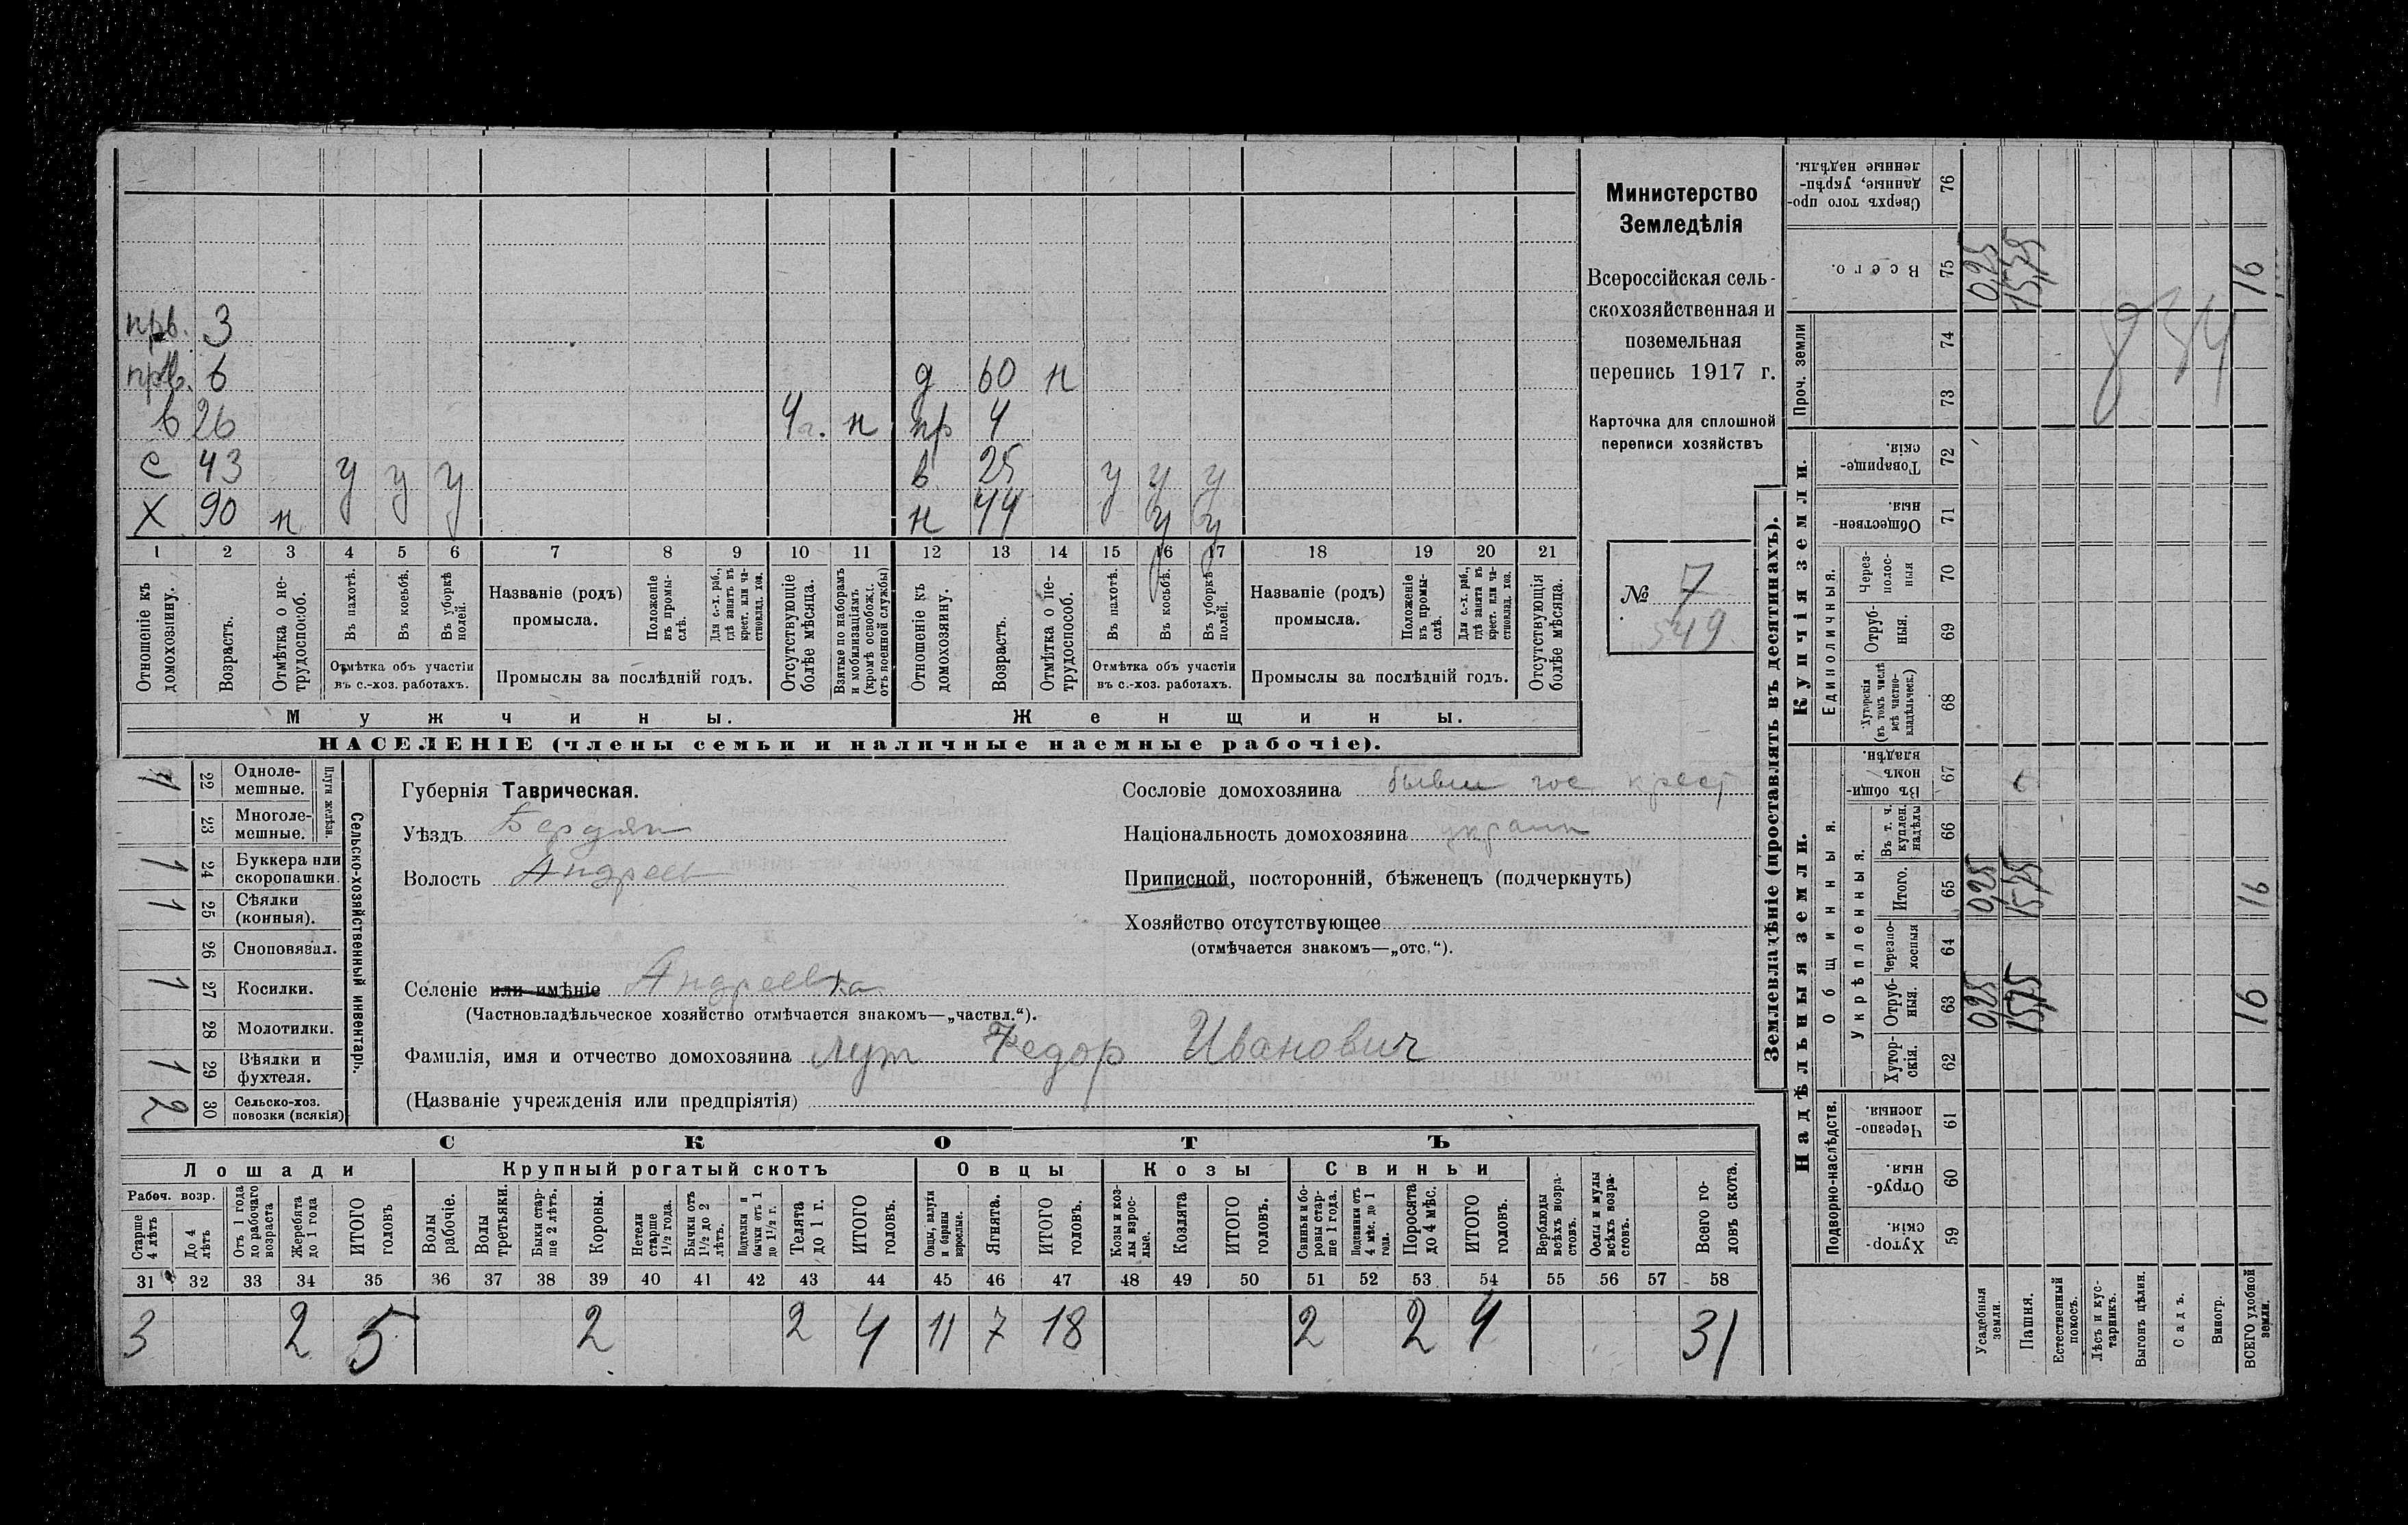 прв. 3
прв. 6 д 60 н
в 26 4 г. н пр 4
с 43 у у у в 25 у у у
Х 90 н н 44 у у
1 2 3 4 5 6 7 8 9 10 11 12 13 14 15 16 17 18 19 20 21
Отношеніе къ домохозяину.
Возрастъ.
Отмѣтка о не-трудоспособ.
Въ пахотѣ.
Въ косьбѣ.
Въ уборкѣ полей.
Отмѣтка объ участіи
въ с.-хоз. работахъ.
Названіе (родъ)
промысла.
Положеніе въ промы-слѣ.
Для с.-х. раб., гдѣ занятъ въ крест. или ча-стновлад. хоз.
Промыслы за послѣдній годъ.
Отсутствующіе болѣе мѣсяца.
Взятые по наборамъ и мобилизаціямъ (кромѣ освобожд. отъ военной службы)
Отношеніе къ домохозяину.
Возрастъ.
Отмѣтка о не-трудоспособ.
Въ пахотѣ.
Въ косьбѣ.
Въ уборкѣ полей.
Отмѣтка объ участіи
въ с.-хоз. работахъ.
Названіе (родъ)
промысла.
Положеніе въ промы-слѣ.
Для с.-х. раб., гдѣ занята въ крест. или ча-стновлад. хоз.
Промыслы за послѣдній годъ.
Отсутствующія болѣе мѣсяца.
Мужчины. Женщины.
НАСЕЛЕНІЕ (члены семьи и наличные наемные рабочіе).
Министерство
Земледѣлія
Всероссійская сель-
скохозяйственная и
поземельная
перепись 1917 г.
Карточка для сплошной
переписи хозяйствъ
№ 7
549
Сельско-хозяйственный инвентарь.
Плуги желѣзн.
22 Одноле-мешные.
23 Многоле-мешные.
1 24 Буккера или скоропашки.
1 25 Сѣялки (конныя).
26 Сноповязал.
1 27 Косилки.
28 Молотилки.
1 29 Вѣялки и фухтеля.
2 30 Сельско-хоз. повозки (всякія)
Губернія Таврическая.
Уѣздъ Бердян
Волость Андреев
Селеніе или имѣніе Андреевка
(Частновладѣльческое хозяйство отмѣчается знакомъ—„частвл.“).
Фамилія, имя и отчество домохозяина Лут Федор Иванович
(Названіе учрежденія или предпріятія)
Сословіе домохозяина бывш гос крест
Національность домохозяина украин
Приписной, посторонній, бѣженецъ (подчеркнуть)
Хозяйство отсутствующее
(отмѣчается знакомъ—„отс.“).
СКОТЪ
Лошади Крупный рогатый скотъ Овцы Козы Свиньи
Рабоч. возр.
Старше 4 лѣтъ
До 4 лѣтъ
Отъ 1 года до рабочаго возраста
Жеребята до 1 года
ИТОГО головъ
Волы рабочіе.
Волы третьяки.
Быки стар-ше 2 лѣтъ.
Коровы.
Нетели старше 1½ года.
Бычки отъ 1½ до 2 лѣтъ.
Подтелки и бычки отъ 1 до 1½ г.
Телята до 1 г.
ИТОГО головъ.
Овцы, валухи и бараны взрослые.
Ягнята.
ИТОГО головъ.
Козы и коз-лы взрос-лые.
Козлята
ИТОГО головъ.
Свиньи и бо-ровы стар-ше 1 года.
Подсвинки отъ 4 мѣс. до 1 года.
Поросята до 4 мѣс.
ИТОГО головъ.
Верблюды всѣхъ возра-стовъ.
Ослы и мулы всѣхъ возра-стовъ.
Всего го-ловъ скота.
31 32 33 34 35 36 37 38 39 40 41 42 43 44 45 46 47 48 49 50 51 52 53 54 55 56 57 58
3 2 5 2 2 4 11 7 18 2 2 4 31
Землевладѣніе (проставлять въ десятинахъ).
Надѣльныя земли. Купчія земли. Проч. земли
Подворно-наслѣдств.
Общинныя.
Укрѣпленныя.
Единоличныя.
59 Хутор-скія.
60 Отруб-ныя.
61 Черезпо-лосныя.
62 Хутор-скія.
63 Отруб-ныя. 0,25 15,75 16
64 Черезпо-лосныя
65 Итого. 0,25 15,75 16
66 Въ т. ч. куплен. надѣлы
67 Въ общи-номъ владѣн.
68 Хуторскія (въ томъ числѣ всѣ частно-владѣльческ.)
69 Отруб-ныя.
70 Через-полос-ныя
71 Обществен-ныя.
72 Товарище-скія.
73
74
75 Всего. 0,25 15,75 16
76 Сверхъ того про-данные, укрѣп-ленные надѣлы.
Усадебныя земли.
Пашня.
Естественный покосъ.
Лѣсъ и кус-тарникъ.
Выгонъ цѣлин.
Садъ.
Виногр.
ВСЕГО удобной земли.